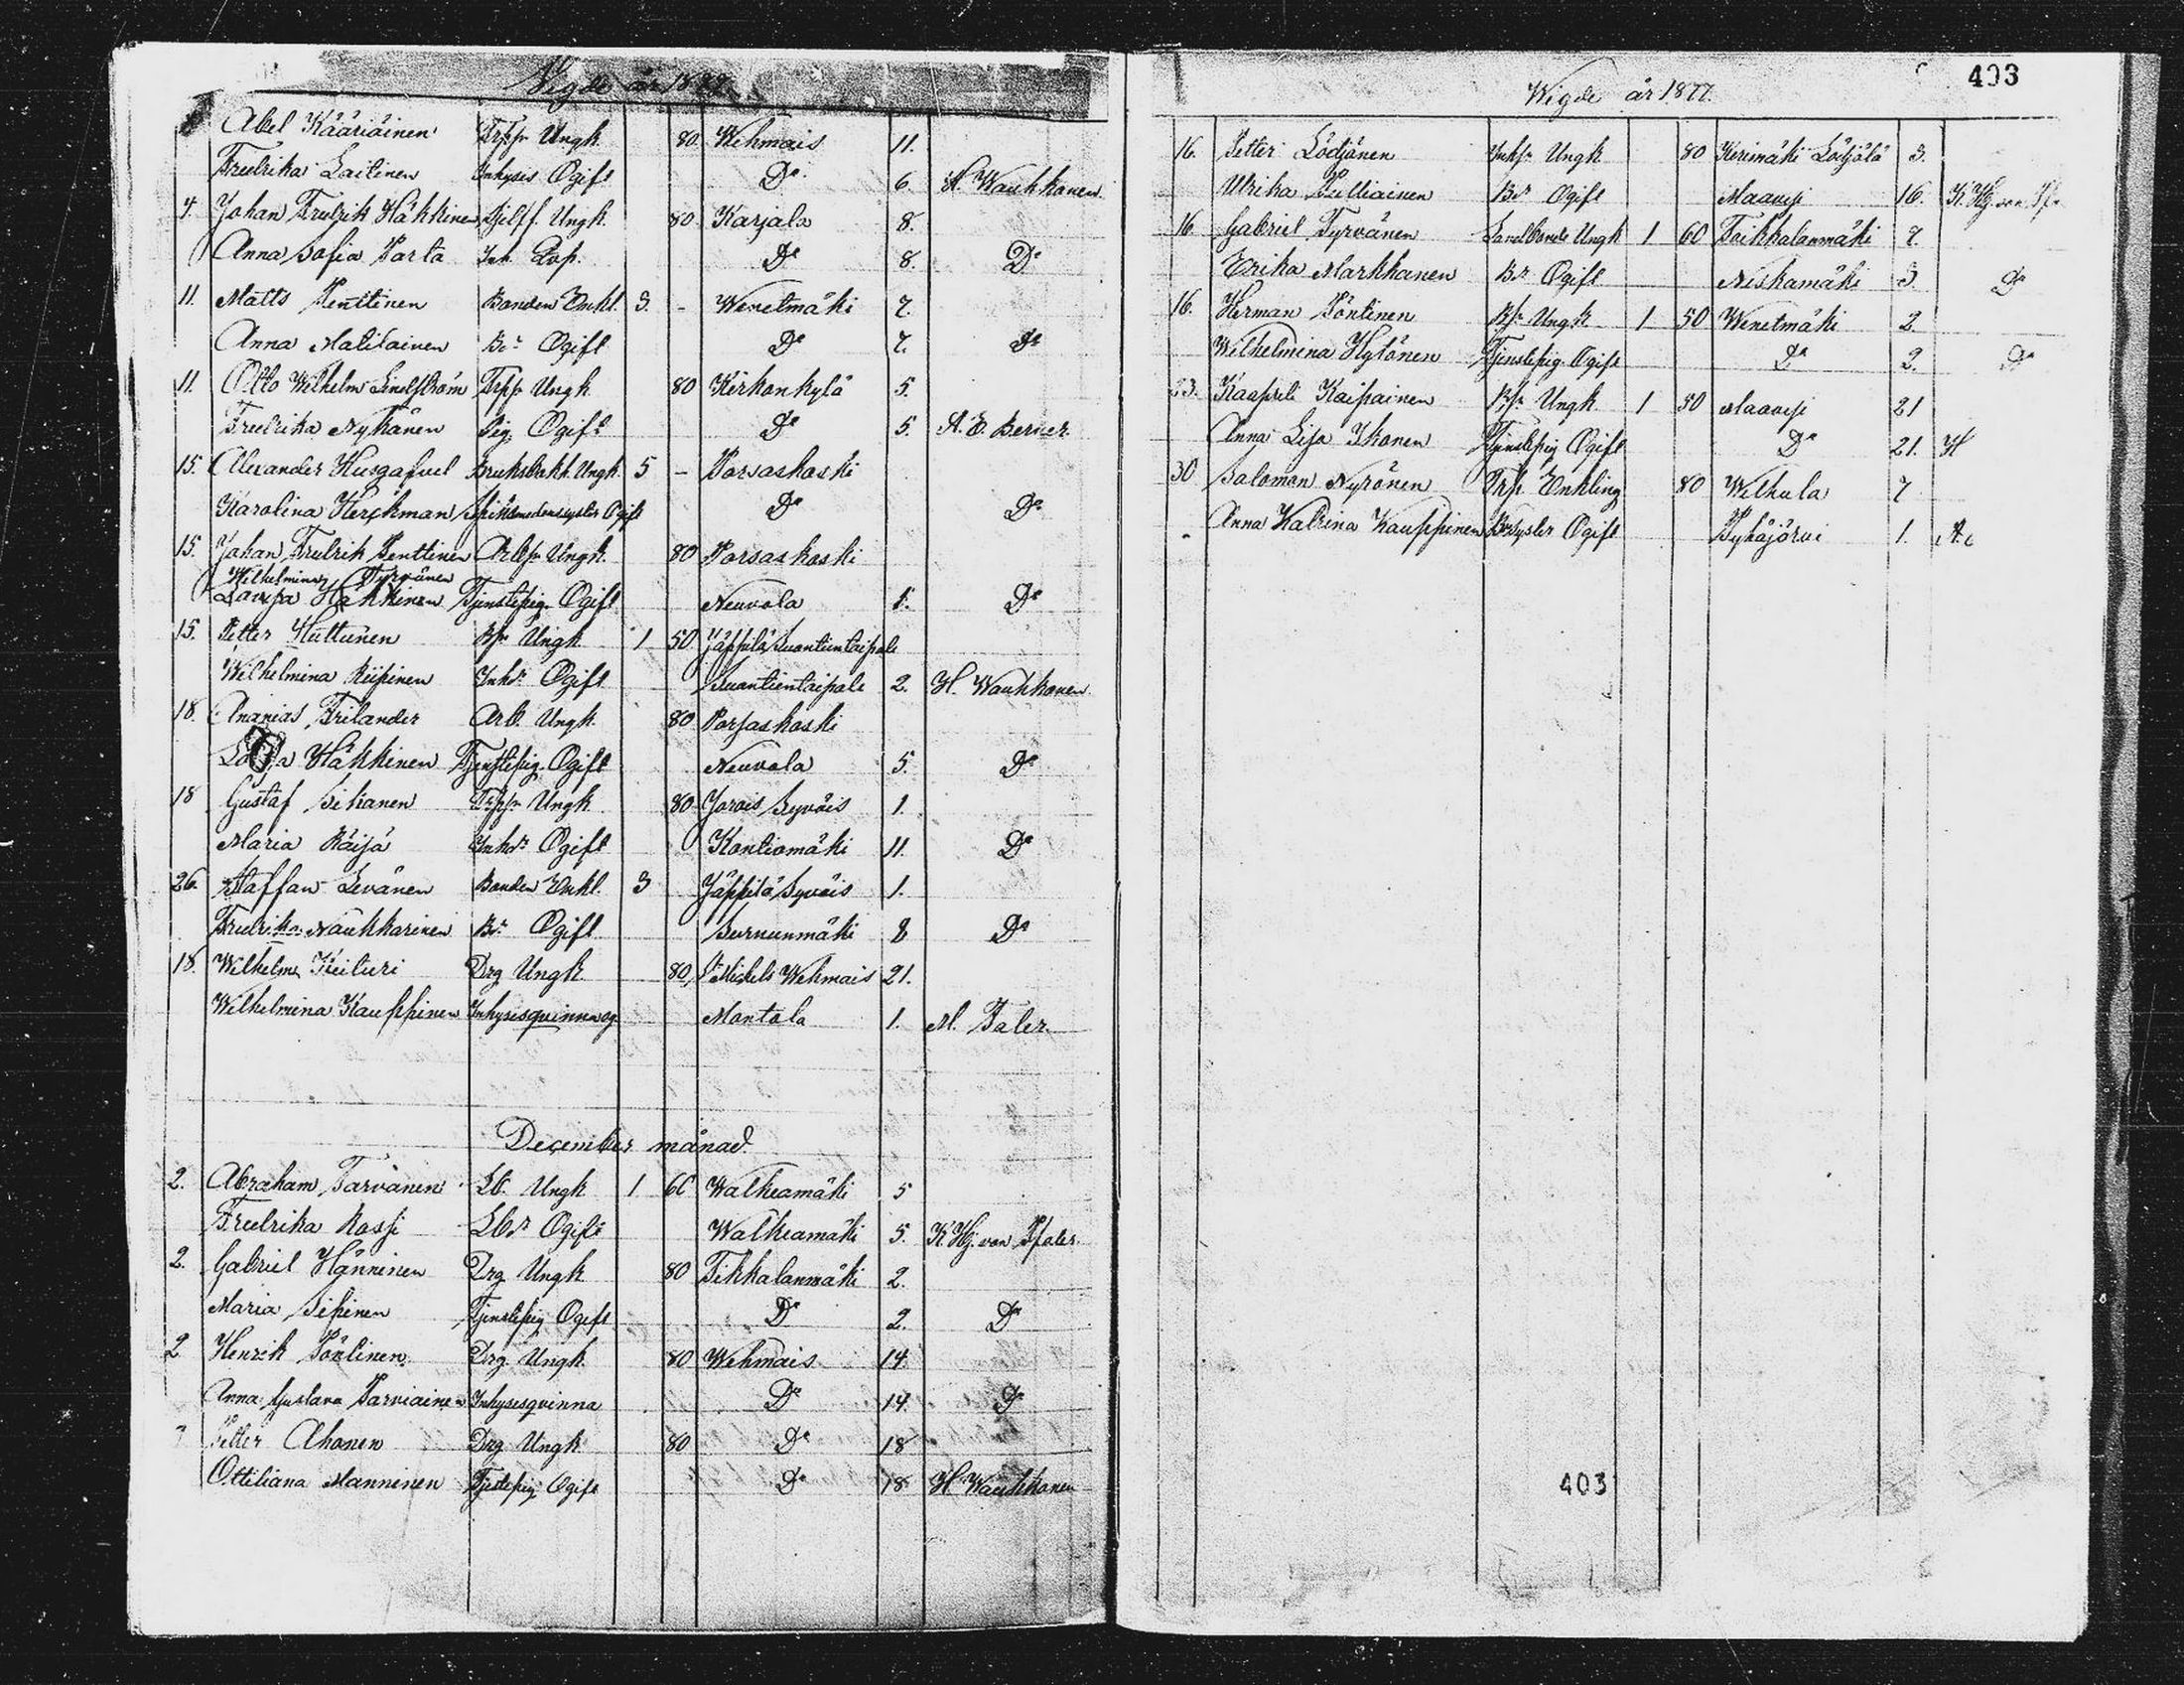 Vigde år 1877.
Abel Kääriäinen Trpr Ungk. 80 Wehmais 11.
Fredrika Laitinen Inhyses Ogift D:o 6. A. Wauhkonen
4. Johan Fredrik Häkkinen Sjelff. Ungk. 80 Karjala 8.
Anna Sofia Parta Inh. D:o 8. D:o
11. Matts Penttinen Bonden Enkl. 3. - Wenetmäki 7.
Anna Matilainen Bdr Ogift D:o 7. D:o
11. Otto Wilhelm Lindström Trpr Ungk. 80 Kirkonkylä 5.
Fredrika Nykänen Pig. Ogift D:o 5. A. E. Berner.
15. Alexander Husgafvel Bruksbokh. Ungk. 5 - Porsaskoski
Karolina Herckman Ogift D:o D:o
15. Johan Fredrik Penttinen Arbkr Ungk. 80 Porsaskoski
Wilhelmina Tyrvänen
Lovisa Häkkinen Tjenstepig. Ogift Neuvola 5. D:o
15. Petter Huttunen Bsn Ungk 1 50 Jäppilä Suontientaipale
Wilhelmina Riipinen Inhdr Ogift Suontientaipale 2. H. Wauhkonen
18. Ananias Frilander Arb. Ungk. 80 Porsaskoski
Häkkinen Tjenstepig. Ogift Neuvola 5. D:o
18 Gustaf Sikanen Trpsn Ungk 80 Jorois Syväis 1.
Maria Räisä Inhdr Ogift Kontiomäki 11. D:o
26. Staffan Levänen Bonden Enkl. 3 Jäppilä Syväis 1.
Fredrika Naukkarinen Bdr Ogift Surnunmäki 8 D:o
18. Wilhelm Keituri Drg Ungk 80 S:t Michels Wehmais 21.
Wilhelmina Kauppinen Inhysesqvinna og Montola 1. M. Faler
December månad.
2. Abraham Tarvänen Lb. Ungk 1 60 Walkeamäki 5
Fredrika Rossi Lbdr Ogift Walkeamäki 5. K. Hj. von Pfaler.
2. Gabriel Hänninen Drg Ungk 80 Tikkalanmäki 2.
Maria Sipinen Tjenstepig Ogift D:o 2. D:o
2 Henrik Pöntinen Drg Ungk. 80 Wehmais 14.
Anna Gustava Parviainen Inhysesqvinna D:o 14. D:o
Petter Ahonen Drg Ungk 80 D:o 18
Ottiliana Manninen Tjestepig Ogift D:o 18 H Wauhkonen
403
Wigde år 1877.
16. Petter Lödjönen Inhsn Ungk 80 Kerimäki Lödjölä 3.
Ulrika Pulliainen Bdr Ogift Maavesi 16. K. Hj. von Pf.
16. Gabriel Tyrvänen Landbonde Ungk 1 60 Toikkalanmäki 7.
Erika Markkanen Bdr Ogift Niskamäki 3. D:o
16. Herman Pöntinen Bsn Ungk 1 50 Wenetmäki 2
Wilhelmina Hytönen Tjenstepig. Ogift D:o 2. D:o
23. Kaapreli Kaipainen Bsn Ungk 1 50 Maavesi 21
Anna Lisa Ikonen Tjenstepig Ogift D:o 21. H
30 Salomon Nyrönen Trp Enkling 80 Wilhula 7
Anna Katrina Kauppinen Bdsyster Ogift Pyhäjärvi 1.
403